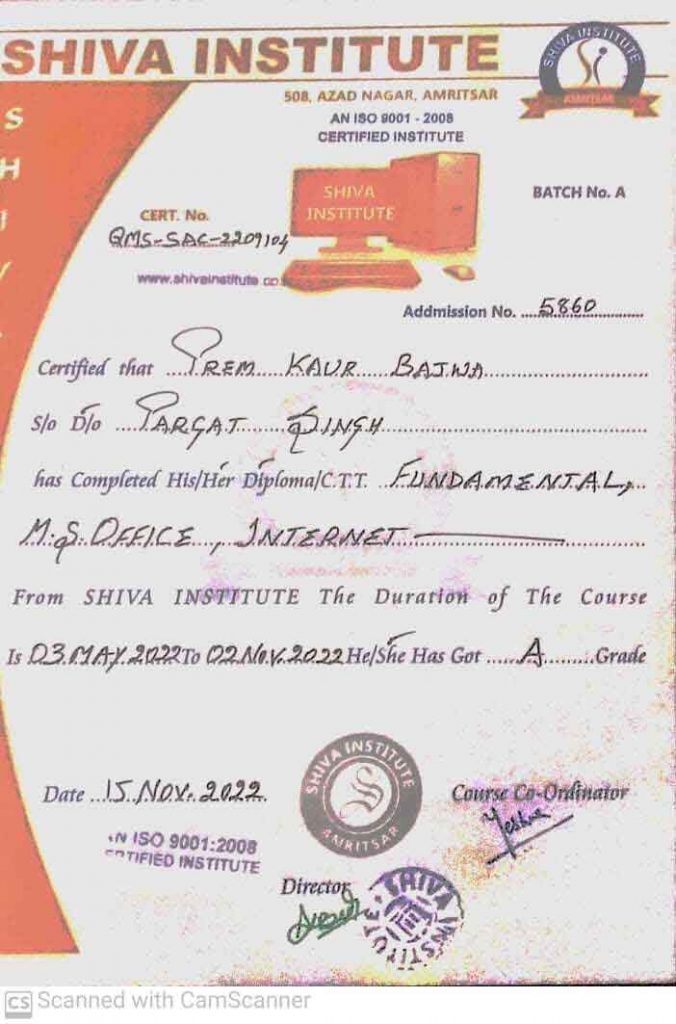 SHIVA INSTITUTE
SHIVA INSTITUTE
AMRITSAR
508, AZAD NAGAR, AMRITSAR
AN ISO 9001 - 2008
CERTIFIED INSTITUTE
S
H
I
V
SHIVA
INSTITUTE
BATCH No. A
CERT. No.
QMS-SAC-2209104
www.shivainstitute.co
Addmission No. ....5860..............
Certified that ....PREM KAUR BAJWA..............
S/o D/o ....PARGAT SINGH..............
has Completed His/Her Diploma/C.T.T. FUNDAMENTAL,
M.S. OFFICE, INTERNET
From SHIVA INSTITUTE The Duration of The Course
Is 03 MAY 2022 To 02 NOV. 2022 He/She Has Got ......A......Grade
Date ..15 NOV. 2022
SHIVA INSTITUTE
S
AMRITSAR
Course Co-Ordinator
AN ISO 9001:2008
CERTIFIED INSTITUTE
Director
SHIVA INSTITUTE
CS Scanned with CamScanner